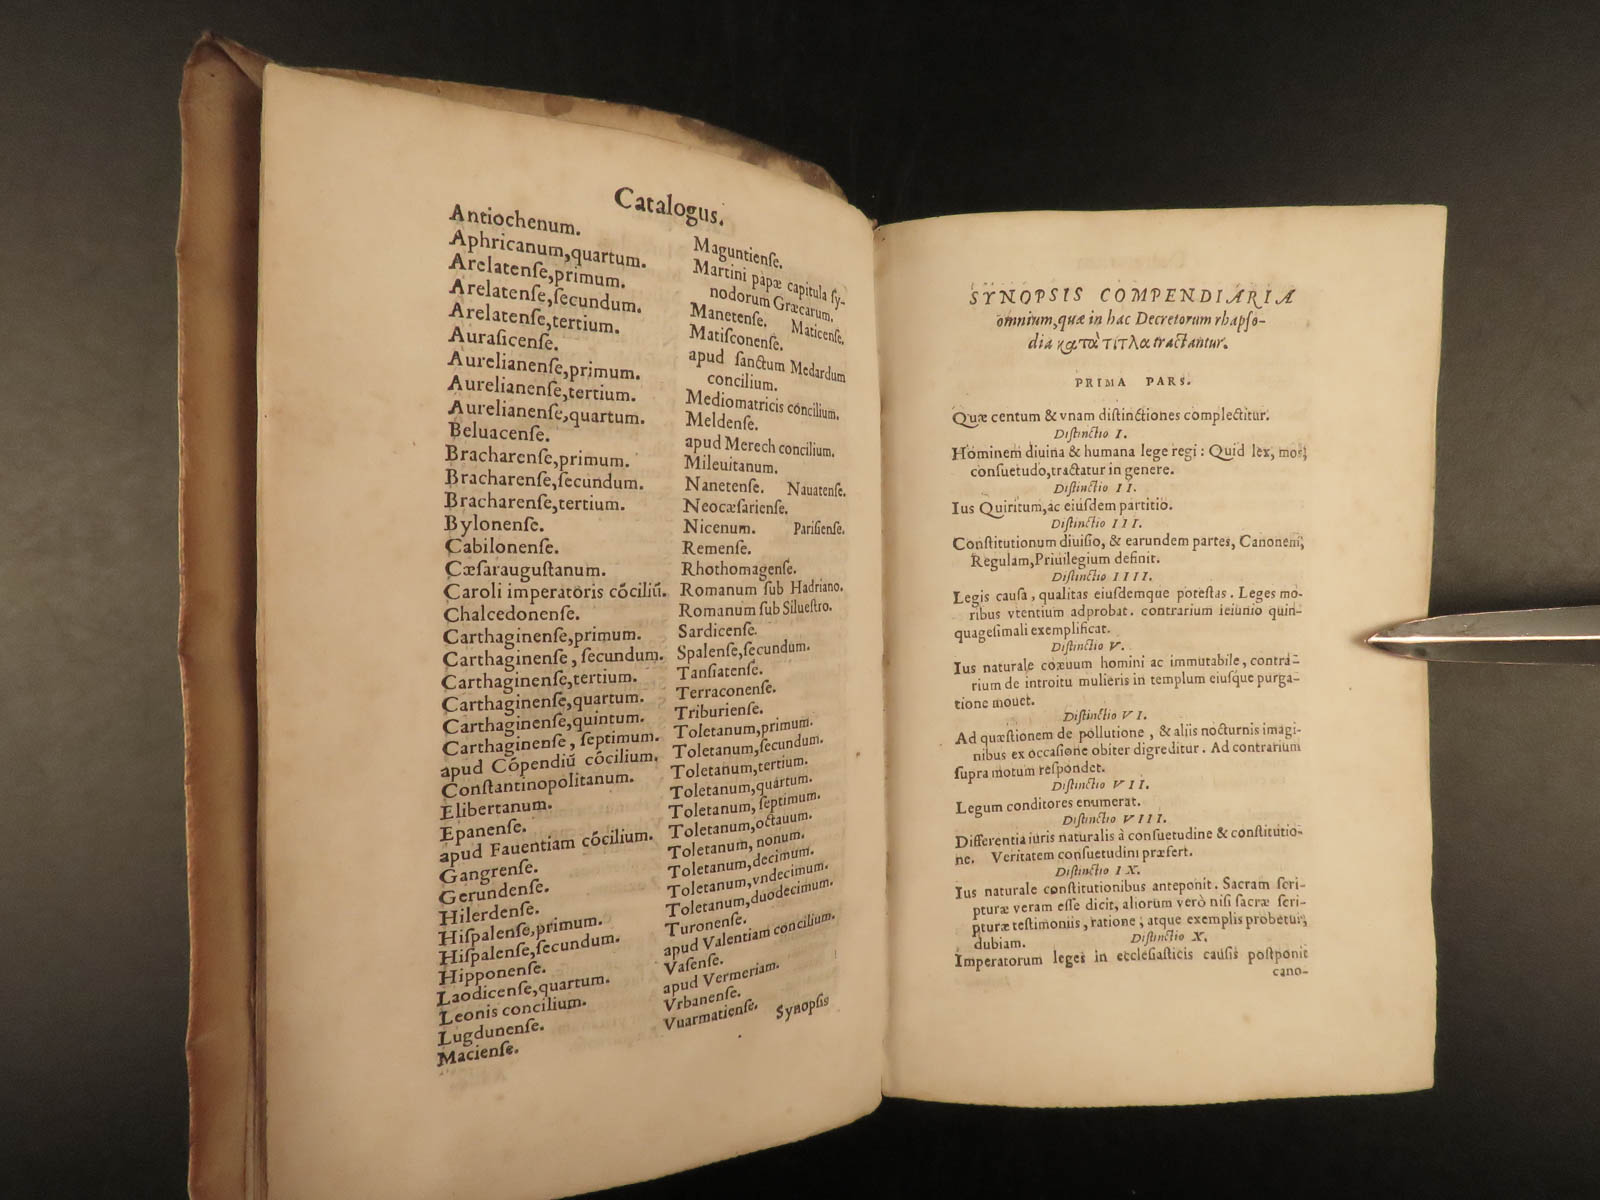 Catalogus.
Antiochenum.
Aphricanum, quartum.
Arelatenſe, primum.
Arelatenſe, ſecundum.
Arelatenſe, tertium.
Auraſicenſe.
Aurelianenſe, primum.
Aurelianenſe, tertium.
Aurelianenſe, quartum.
Beluacenſe.
Bracharenſe, primum.
Bracharenſe, ſecundum.
Bracharenſe, tertium.
Bylonenſe.
Cabilonenſe.
Cæſarauguſtanum.
Caroli imperatoris cõciliũ.
Chalcedonenſe.
Carthaginenſe, primum.
Carthaginenſe, ſecundum.
Carthaginenſe, tertium.
Carthaginenſe, quartum.
Carthaginenſe, quintum.
Carthaginenſe, ſeptimum.
apud Cõpendiũ cõcilium.
Conſtantinopolitanum.
Elibertanum.
Epanenſe.
apud Fauentiam cõcilium.
Gangrenſe.
Gerundenſe.
Hilerdenſe.
Hiſpalenſe, primum.
Hiſpalenſe, ſecundum.
Hipponenſe.
Laodicenſe, quartum.
Leonis concilium.
Lugdunenſe.
Macienſe.
Maguntienſe.
Martini papæ capitula ſy-
nodorum Græcarum.
Manetenſe. Maticenſe.
Matiſconenſe.
apud ſanctum Medardum
concilium.
Mediomatricis concilium.
Meldenſe.
apud Merech concilium.
Mileuitanum.
Nanetenſe. Nauatenſe.
Neocæſarienſe.
Nicenum. Pariſienſe.
Remenſe.
Rhothomagenſe.
Romanum ſub Hadriano.
Romanum ſub Silueſtro.
Sardicenſe.
Spalenſe, ſecundum.
Tanſiatenſe.
Terraconenſe.
Triburienſe.
Toletanum, primum.
Toletanum, ſecundum.
Toletanum, tertium.
Toletanum, quartum.
Toletanum, ſeptimum.
Toletanum, octauum.
Toletanum, nonum.
Toletanum, decimum.
Toletanum, vndecimum.
Toletanum, duodecimum.
Turonenſe.
apud Valentiam concilium.
Vaſenſe.
apud Vermeriam.
Vrbanenſe.
Vuarmatienſe. Synopſis
SYNOPSIS COMPENDIARIA
omnium, quæ in hac Decretorum rhapſo-
dia κατὰ τίτλα tractantur.
PRIMA PARS.
Quæ centum & vnam diſtinctiones complectitur.
Diſtinctio I.
Hominem diuina & humana lege regi : Quid lex, mos,
conſuetudo, tractatur in genere.
Diſtinctio II.
Ius Quiritum, ac eiuſdem partitio.
Diſtinctio III.
Conſtitutionum diuiſio, & earundem partes, Canonem,
Regulam, Priuilegium definit.
Diſtinctio IIII.
Legis cauſa, qualitas eiuſdemque poteſtas. Leges mo-
ribus vtentium adprobat. contrarium ieiunio quin-
quageſimali exemplificat.
Diſtinctio V.
Ius naturale coæuum homini ac immutabile, contra-
rium de introitu mulieris in templum eiuſque purga-
tione mouet.
Diſtinctio VI.
Ad quæſtionem de pollutione, & aliis nocturnis imagi-
nibus ex occaſione obiter digreditur. Ad contrarium
ſupra motum reſpondet.
Diſtinctio VII.
Legum conditores enumerat.
Diſtinctio VIII.
Differentia iuris naturalis à conſuetudine & conſtitutio-
ne. Veritatem conſuetudini præfert.
Diſtinctio IX.
Ius naturale conſtitutionibus anteponit. Sacram ſcri-
pturæ veram eſſe dicit, aliorum verò niſi ſacræ ſcri-
pturæ teſtimoniis, ratione, atque exemplis probetur,
dubiam. Diſtinctio X.
Imperatorum leges in eccleſiaſticis cauſis poſtponit
cano-